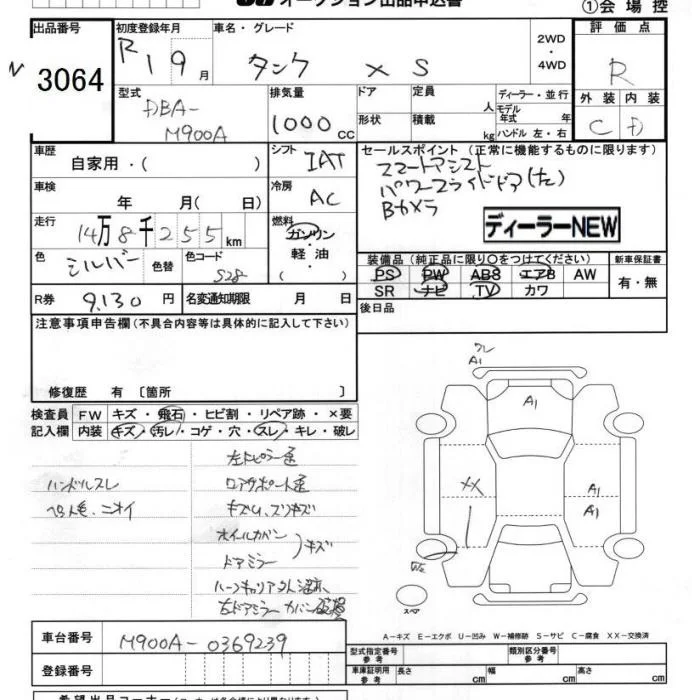 オークション出品申込書
①会場控
出品番号
3064
初度登録年月
R 1 9 月
車名・グレード
タンク X S
2WD
・
4WD
評価点
R
外装 内装
C D
型式
DBA-
M900A
排気量
1000 cc
ドア
形状
定員 人
積載 kg
ディーラー・並行
モデル年式 年
ハンドル 左・右
車歴
自家用・( )
シフト
IAT
セールスポイント(正常に機能するものに限ります)
スマートアシスト
パワースライドドア(左)
Bカメラ
ディーラーNEW
車検
年 月( 日)
冷房
AC
走行
14万8千255km
燃料
ガソリン
・
軽油
・
( )
色
シルバー
色替
色コード
S28
装備品(純正品に限り○をつけてください)
PS PW ABS エアB AW
SR ナビ TV カワ
新車保証書
有・無
R券
9,130 円
名変通知期限 月 日
後日品
注意事項申告欄(不具合内容等は具体的に記入して下さい)
修復歴 有 〔箇所 〕
検査員
記入欄
FW キズ・飛石・ヒビ割・リペア跡・×要
内装 キズ・汚レ・コゲ・穴・スレ・キレ・破レ
左ドピラー歪
ハンドルスレ
ロアサポート歪
ペット毛、ニオイ
キズU、スリキズ
ホイルカバン
ドアミラー
キズ
右ドアミラーカバー
ワレ
A1
A1
XX
A1
A1
W2
スペア
A-キズ E-エクボ U-凹み W-補修跡 S-サビ C-腐食 XX-交換済
車台番号
M900A-0369239
登録番号
型式指定番号
参考
類別区分番号
参考
車庫証明用
参考
長さ cm
幅 cm
高さ cm